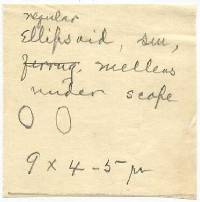 regular
Ellipsoid, sm,
ferrug. melleus
under scope
9 x 4-5 μ